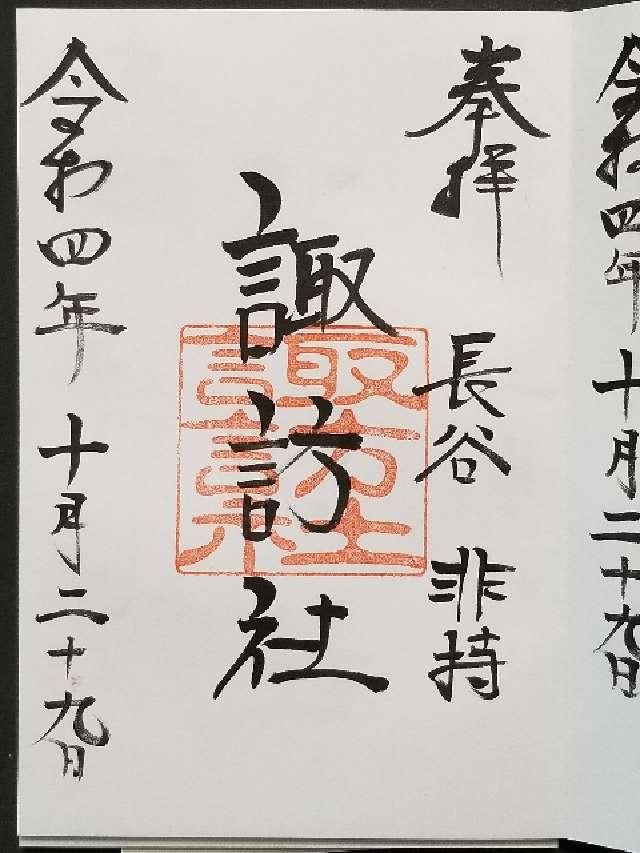 奉拝
長谷 非持
諏訪社
諏訪社
令和四年 十月二十九日
令和四年 十月二十九日